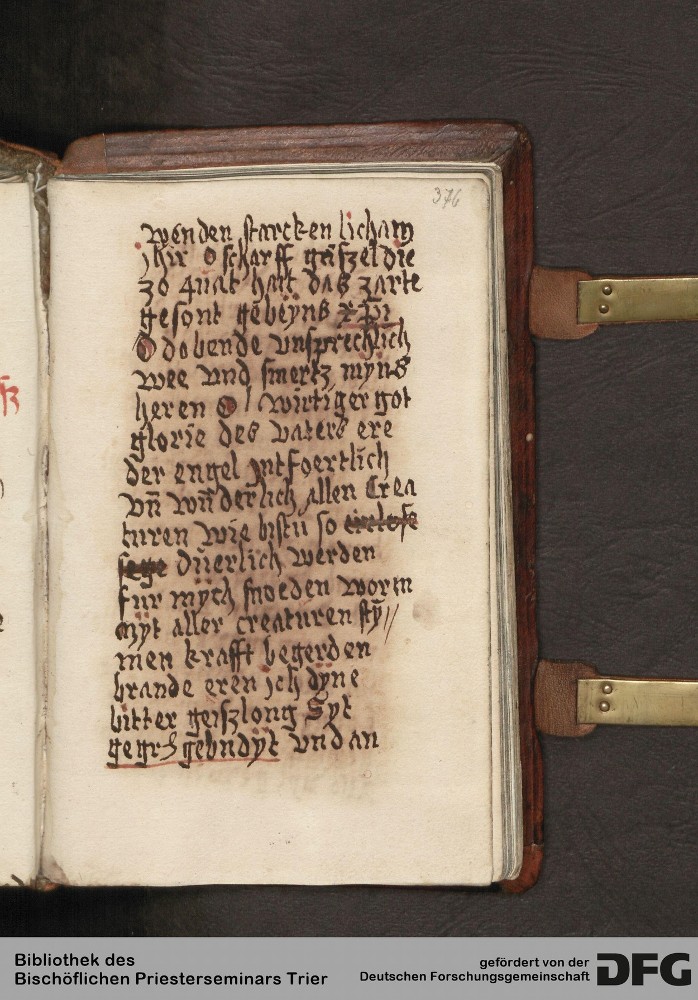 376
wenden starcken licham
jhir O scharff geiszel die
zo quat hait das zarte
gesont gebeyns xpi
O dobende vnsprechlich
wee vnd smertz myns
heren O wirtiger got
glorie des vaters ere
der engel yntfoertlich
vn̄ wn̄derlich allen Crea
turen wie bistu so
duerlich werden
fur mych snoeden worm
Myt aller creaturen sty̅//
men krafft begerden
brande eren jch dyne
bitter geiszlong Syt
gegr gebndyt vnd an
Bibliothek des
Bischöflichen Priesterseminars Trier
gefördert von der
Deutschen Forschungsgemeinschaft DFG